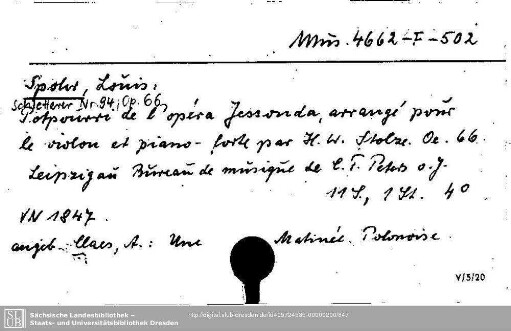 Mus. 4662-F-502
Spohr, Louis:
Schletterer Nr. 94, Op. 66
Potpourri de l'opéra Jessonda, arrangé pour
le violon et piano-forte par H. W. Stolze. Oe. 66.
Leipzig au Bureau de musique de C. F. Peters o. J.
11 S., 1 St. 4°
VN 1847.
angeb. Claes, A.: Une Matinée. Polonoise.
V/5/20
SLUB
Sächsische Landesbibliothek –
Staats- und Universitätsbibliothek Dresden